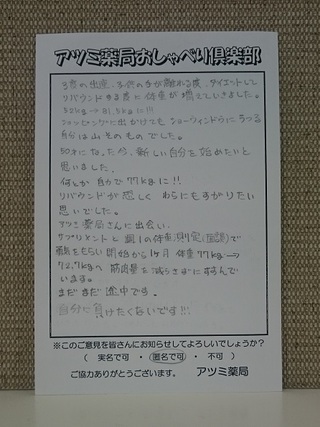 アツミ薬局おしゃべり倶楽部
3度の出産、子供の手が離れる度、ダイエットして
リバウンドする度に体重が増えていきました。
52kg→81.5kgに!!!
ショッピングに出かけてもショーウィンドウにうつる
自分は山そのものでした。
50才になった今、新しい自分を始めたいと
思いました。
何とか自力で77kgに!!
リバウンドが恐くわらにもすがりたい
思いでした。
アツミ薬局さんに出会い、
サプリメントと週1の体重測定(面談)で
をもらい開始から1ヶ月体重77kg→
72.7kgへ筋肉量を減らさずにすんで
います。
まだまだ途中です。
自分に負けたくないです!!!
※このご意見を皆さんにお知らせしてよろしいでしょうか?
( 実名で可 ・ 匿名で可 ・ 不可 )
ご協力ありがとうございます。 アツミ薬局